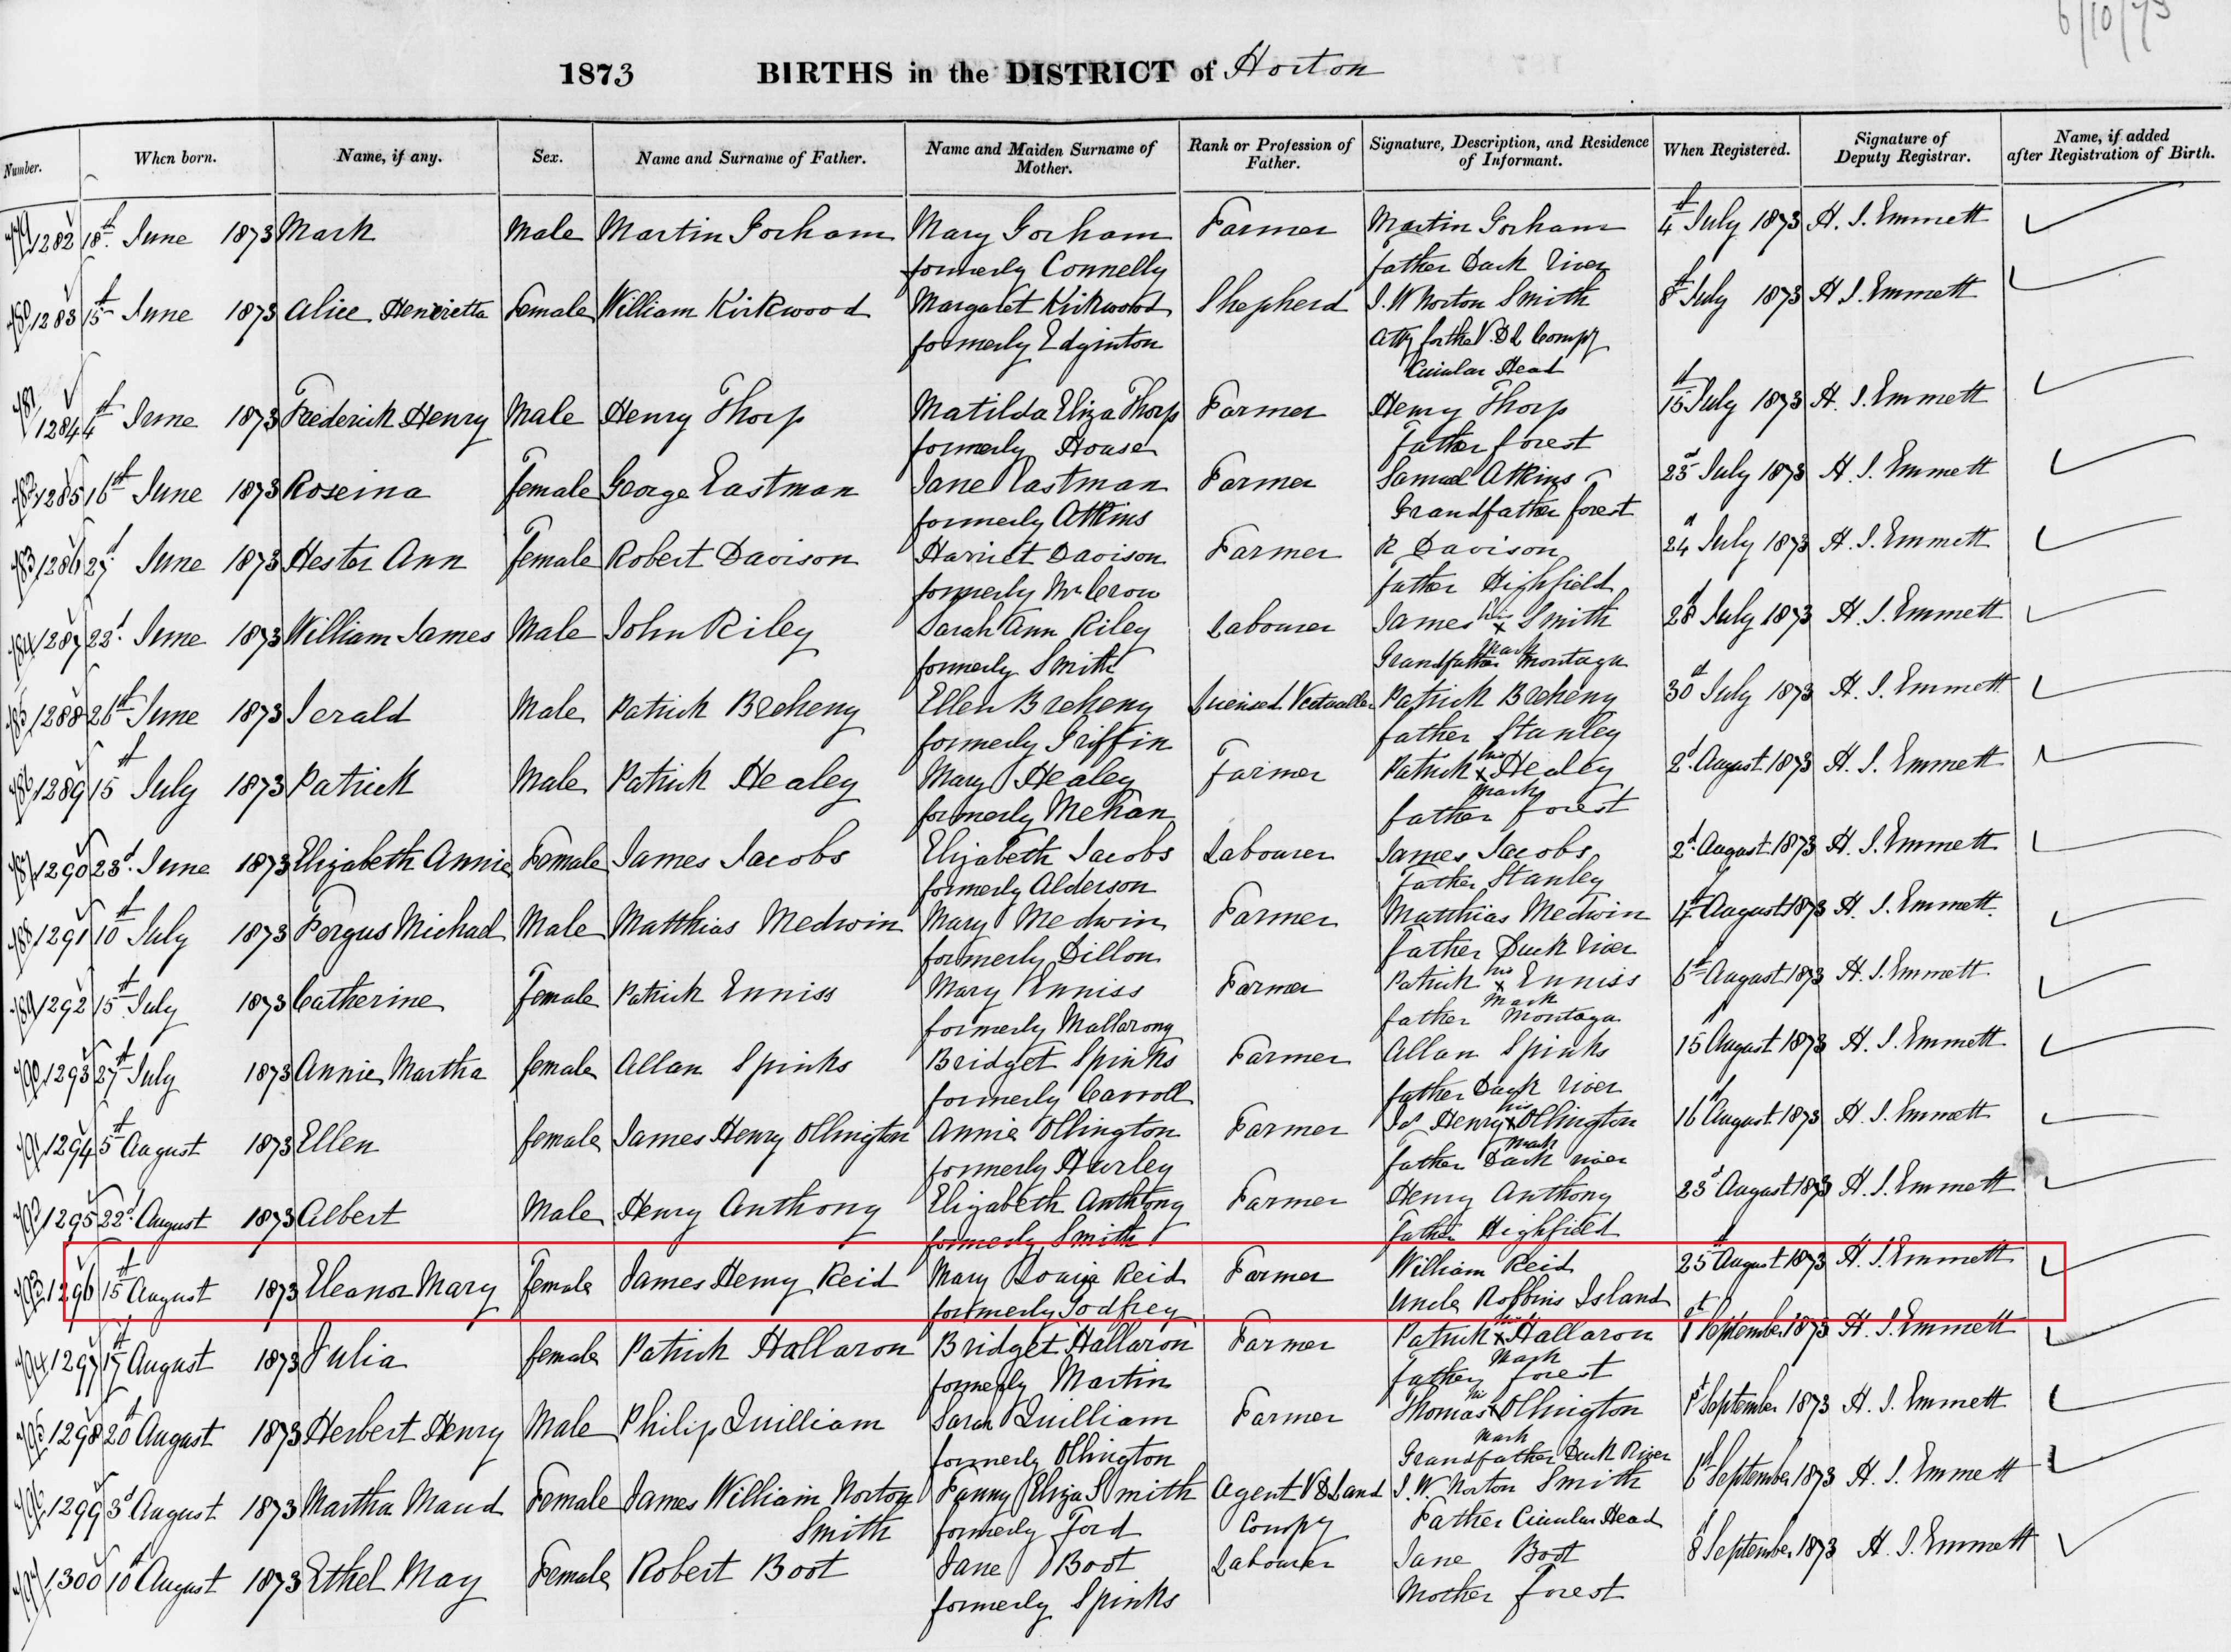 6/10/73
1873 BIRTHS in the DISTRICT of Horton
Number. When born. Name, if any. Sex. Name and Surname of Father. Name and Maiden Surname of Mother. Rank or Profession of Father. Signature, Description, and Residence of Informant. When Registered. Signature of Deputy Registrar. Name, if added after Registration of Birth.
479 1282 18th June 1873 Mark Male Martin Gorham Mary Gorham Farmer Martin Gorham 4th July 1873 H. S. Emmett
formerly Connelly father Duck River
480 1283 15th June 1873 Alice Henrietta Female William Kirkwood Margaret Kirkwood Shepherd J. W Norton Smith 8th July 1873 H S. Emmett
formerly Edginton Atty for the V. D L Compy
Circular Head
481 1284 4th June 1873 Frederick Henry Male Henry Thorp Matilda Eliza Thorp Farmer Henry Thorp 15th July 1873 H. S. Emmett
formerly House Father forest
482 1285 16th June 1873 Roseina female George Eastman Jane Eastman Farmer Samuel Atkins 23d July 1873 H. S. Emmett
formerly Atkins Grandfather forest
483 1286 27th June 1873 Hester Ann female Robert Davison Harriet Davison Farmer R Davison 24th July 1873 H. S. Emmett
formerly McCrow father Highfield
484 1287 22d June 1873 William James Male John Riley Sarah Ann Riley Labourer James his x Smith 28th July 1873 H. S. Emmett
formerly Smith mark Grandfather Montagu
485 1288 26th June 1873 Jerald Male Patrick Breheny Ellen Breheny Licensed Victualler Patrick Breheny 30th July 1873 H. S. Emmett
formerly Griffin father Stanley
486 1289 15th July 1873 Patrick Male Patrick Healey Mary Healey Farmer Patrick his x Healey 2d August 1873 H. S. Emmett
formerly Mehan mark father forest
487 1290 23d June 1873 Elizabeth Annie Female James Jacobs Elizabeth Jacobs Labourer James Jacobs 2d August 1873 H. S. Emmett
formerly Alderson Father Stanley
488 1291 10th July 1873 Fergus Michael Male Matthias Medwin Mary Medwin Farmer Matthias Medwin 4th August 1873 H. S. Emmett
formerly Dillon father Duck River
489 1292 15th July 1873 Catherine female Patrick Enniss Mary Enniss Farmer Patrick his x Enniss 6th August 1873 H. S. Emmett
formerly Mallarony mark father Montagu
490 1293 27th July 1873 Annie Martha female Allan Spinks Bridget Spinks Farmer Allan Spinks 15 August 1873 H. S. Emmett
formerly Carroll father Duck River
491 1294 5th August 1873 Ellen female James Henry Ollington Annie Ollington Farmer Js Henry his x Ollington 16th August 1873 H. S. Emmett
formerly Hurley mark father Duck river
492 1295 22d August 1873 Albert Male Henry Anthony Elizabeth Anthony Farmer Henry Anthony 23d August 1873 H. S. Emmett
formerly Smith father Highfield
493 1296 15th August 1873 Eleanor Mary female James Henry Reid Mary Louisa Reid Farmer William Reid 25th August 1873 H. S. Emmett
formerly Godfrey Uncle Robbins Island
494 1297 17th August 1873 Julia female Patrick Hallaron Bridget Hallaron Farmer Patrick his x Hallaron 1st September 1873 H. S. Emmett
formerly Martin mark father forest
495 1298 20th August 1873 Herbert Henry Male Philip Quilliam Sarah Quilliam Farmer Thomas his x Ollington September 1873 H. S. Emmett
formerly Ollington mark Grandfather Duck River
496 1299 3d August 1873 Martha Maud Female James William Norton Smith Fanny Eliza Smith Agent V D Land Compy J. W. Norton Smith 6th September 1873 H. S. Emmett
formerly Ford Father Circular Head
497 1300 10th August 1873 Ethel May Female Robert Boot Jane Boot Labourer Jane Boot 8 September 1873 H. S. Emmett
formerly Spinks Mother forest